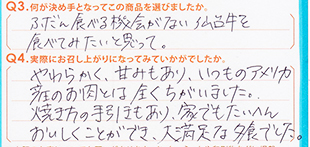 Q3.何が決め手となってこの商品を選びましたか。
ふだん食べる機会がない仙台牛を
食べてみたいと思って。
Q4.実際にお召し上がりになってみていかがでしたか。
やわらかく、甘みもあり、いつものアメリカ
産のお肉とは全くちがいました。
焼き方の手引きもあり、家でもたいへん
おいしくことができ、大満足な夕食でした。